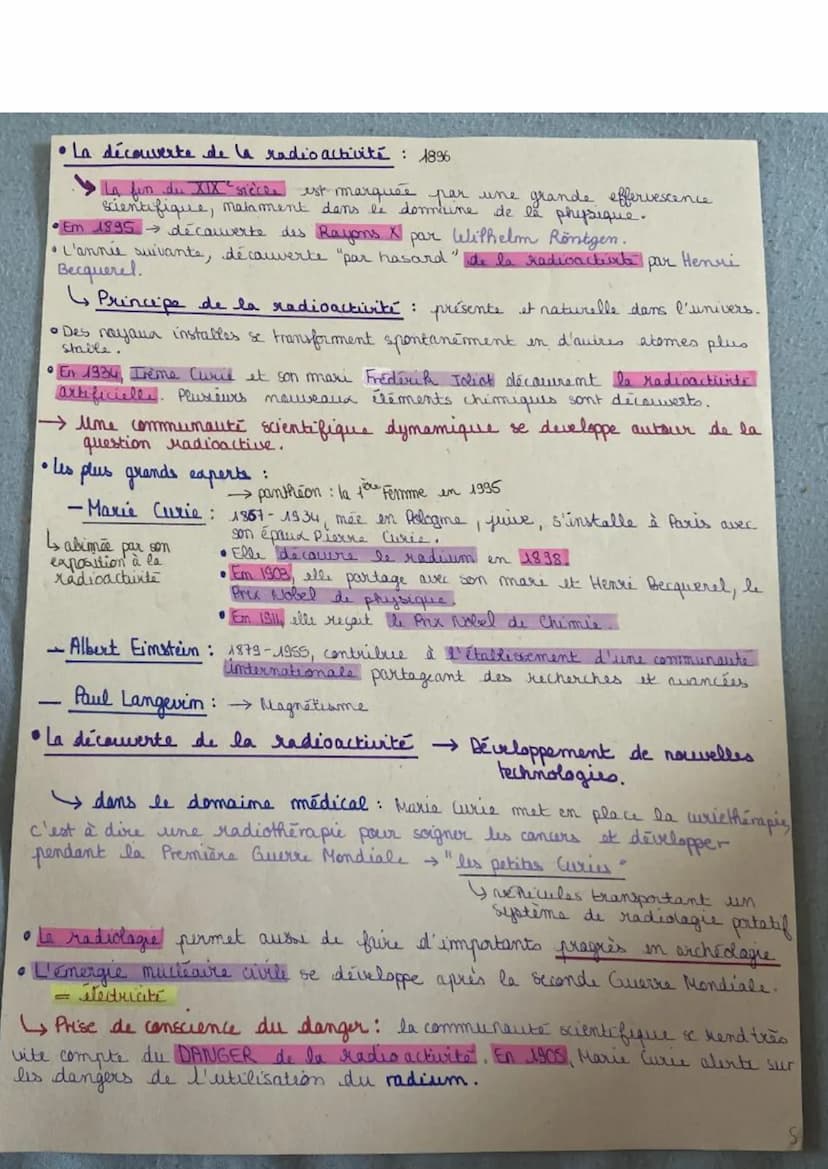 • La découverte de la radioactivité : 1896
↳ La fin du XIXe siècle est marquée par une grande effervescence
scientifique, notamment dans le domaine de la physique.
• En 1895 → découverte des Rayons X par Wilhelm Röntgen.
• L'année suivante, découverte "par hasard" de la radioactivité par Henri
Becquerel.
↳ Principe de la radioactivité : présente et naturelle dans l'univers.
• Des noyaux instables se transforment spontanément en d'autres atomes plus
stable.
• En 1934, Irène Curie et son mari Frédérik Joliot découvrent la radioactivité
artificielle. Plusieurs nouveaux éléments chimiques sont découverts.
→ Une communauté scientifique dynamique se developpe autour de la
question radioactive.
• Les plus grands experts :
→ panthéon : la 1ère Femme en 1995
– Marie Curie : 1867-1934, née en Pologne, juive, s'installe à Paris avec
son époux Pierre Curie.
↳ abimée par son
exposition à la
radioactivité
• Elle découvre le radium en 1898.
• En 1903, elle partage avec son mari et Henri Becquerel, le
Prix Nobel de physique.
• En 1911, elle reçoit le Prix Nobel de Chimie.
– Albert Einstein : 1879-1955, contribue à l'établissement d'une communauté
internationale partageant des recherches et avancées
– Paul Langevin : → Magnétisme
• La découverte de la radioactivité → Développement de nouvelles
technologies.
↳ dans le domaine médical : Marie Curie met en place la curiethérapie,
c'est à dire une radiothérapie pour soigner les cancers et développer
pendant la Première Guerre Mondiale → "les petites Curies"
↳ véhicules transportant un
système de radiologie portatif
• La radiologie permet aussi de faire d'importants progrès en archéologie
• L'énergie nucléaire civile se développe après la Seconde Guerre Mondiale.
= électricité
↳ Prise de conscience du danger : la communauté scientifique se rend très
vite compte du DANGER de la radioactivité. En 1905, Marie Curie alerte sur
les dangers de l'utilisation du radium.